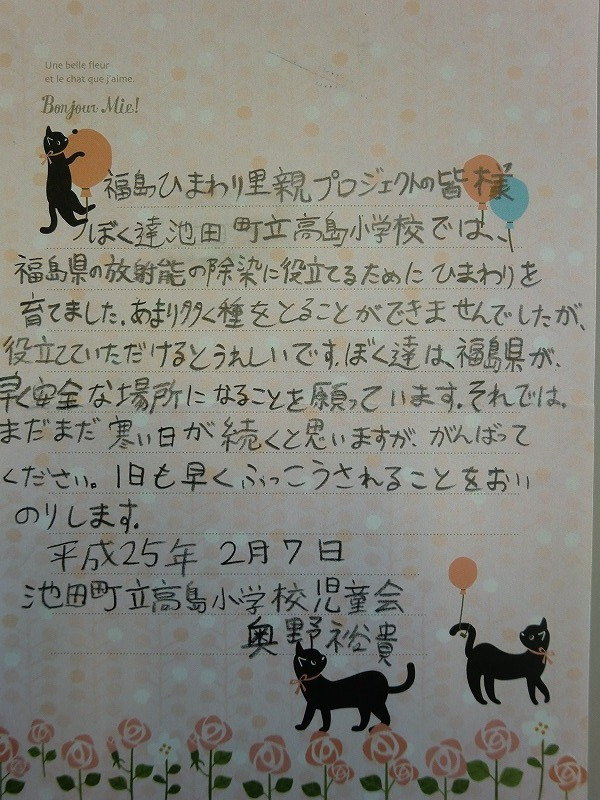 Une belle fleur
et le chat que j'aime.
Bonjour Mie!
福島ひまわり里親プロジェクトの皆様
ぼく達池田町立高島小学校では、
福島県の放射能の除染に役立てるためにひまわりを
育てました。あまり多く種をとることができませんでしたが、
役立てていただけるとうれしいです。ぼく達は、福島県が、
早く安全な場所になることを願っています。それでは。
まだまだ寒い日が続くと思いますが、がんばって
ください。1日も早くふっこうされることをおい
のりします。
平成25年 2月7日
池田町立高島小学校児童会
奥野裕貴